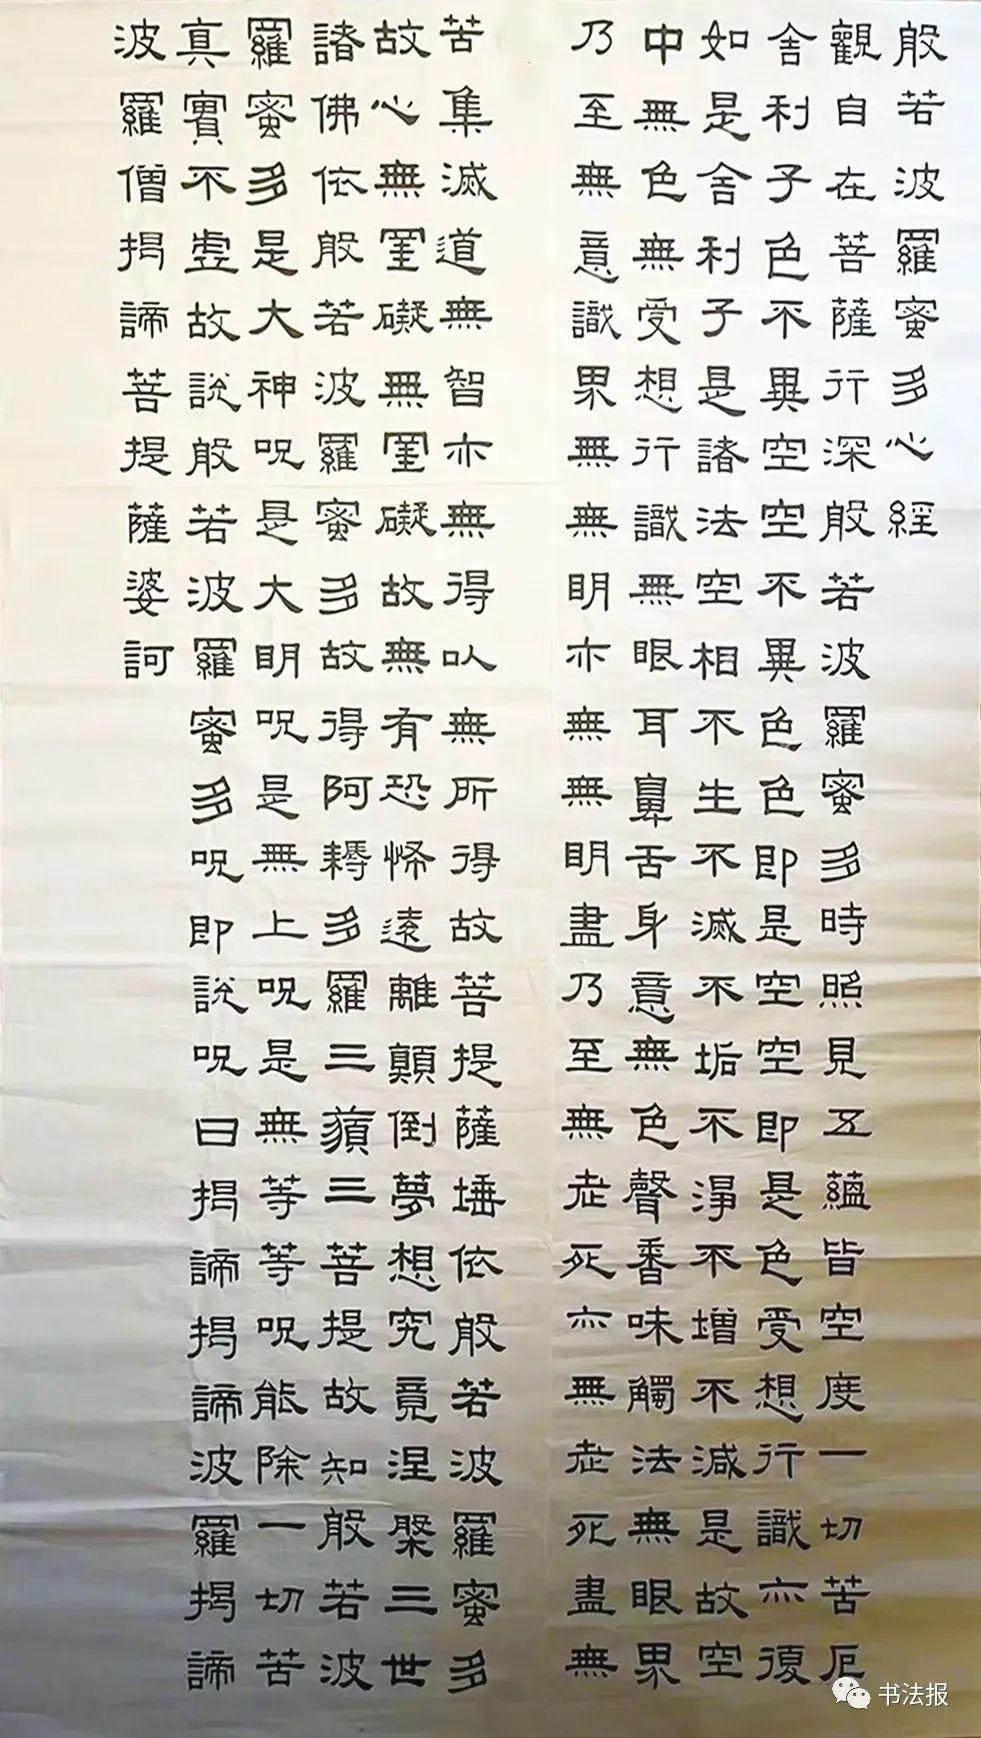 般若波羅蜜多心經
觀自在菩薩行深般若波羅蜜多時照見五蘊皆空度一切苦厄
舍利子色不異空空不異色色即是空空即是色受想行識亦復
如是舍利子是諸法空相不生不滅不垢不淨不增不減是故空
中無色無受想行識無眼耳鼻舌身意無色聲香味觸法無眼界
乃至無意識界無無明亦無無明盡乃至無老死亦無老死盡無
苦集滅道無智亦無得以無所得故菩提薩埵依般若波羅蜜多
故心無罣礙無罣礙故無有恐怖遠離顛倒夢想究竟涅槃三世
諸佛依般若波羅蜜多故得阿耨多羅三藐三菩提故知般若波
羅蜜多是大神呪是大明呪是無上呪是無等等呪能除一切苦
真實不虛故說般若波羅蜜多呪即說呪曰揭諦揭諦波羅揭諦
波羅僧揭諦菩提薩婆訶
书法报